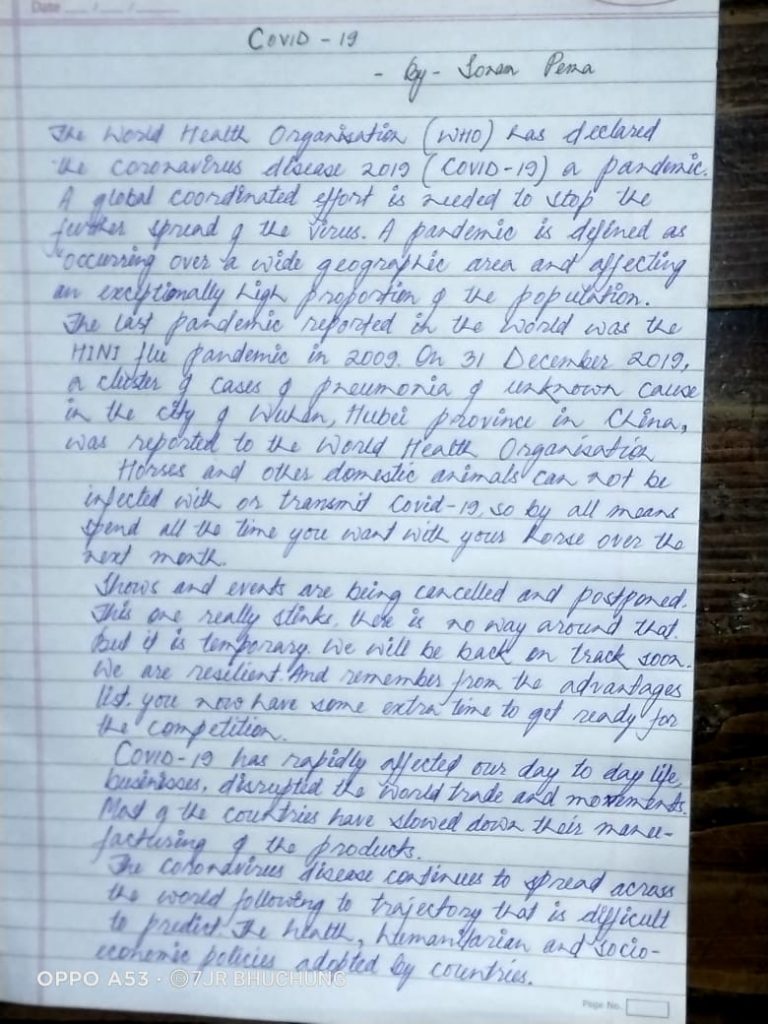 Date
COVID-19
- By - Pema
The World Health Organisation (WHO) has declared
the coronavirus disease 2019 (COVID-19) a pandemic.
A global coordinated effort is needed to stop the
further spread of the virus. A pandemic is defined as
"occurring over a wide geographic area and affecting
an exceptionally high proportion of the population.
The last pandemic reported in the world was the
H1N1 flu pandemic in 2009. On 31 December 2019,
a cluster of cases of pneumonia of unknown cause
in the city of Wuhan, Hubei province in China,
was reported to the World Health Organisation
Horses and other domestic animals can not be
infected with or transmit Covid-19, so by all means
spend all the time you want with your horse over the
next month.
Shows and events are being cancelled and postponed.
This one really stinks, there is no way around that.
But it is temporary. We will be back on track soon.
We are resilient. And remember from the advantages
list, you now have some extra time to get ready for
the competition.
COVID-19 has rapidly affected our day to day life,
businesses, disrupted the world trade and movements.
Most of the countries have slowed down their manu-
facturing of the products.
The coronavirus disease continues to spread across
the world following to trajectory that is difficult
to predict. The health, humanitarian and socio-
economic policies adopted by countries.
OPPO A53 · ©7JR BHUCHUNG
Page No.